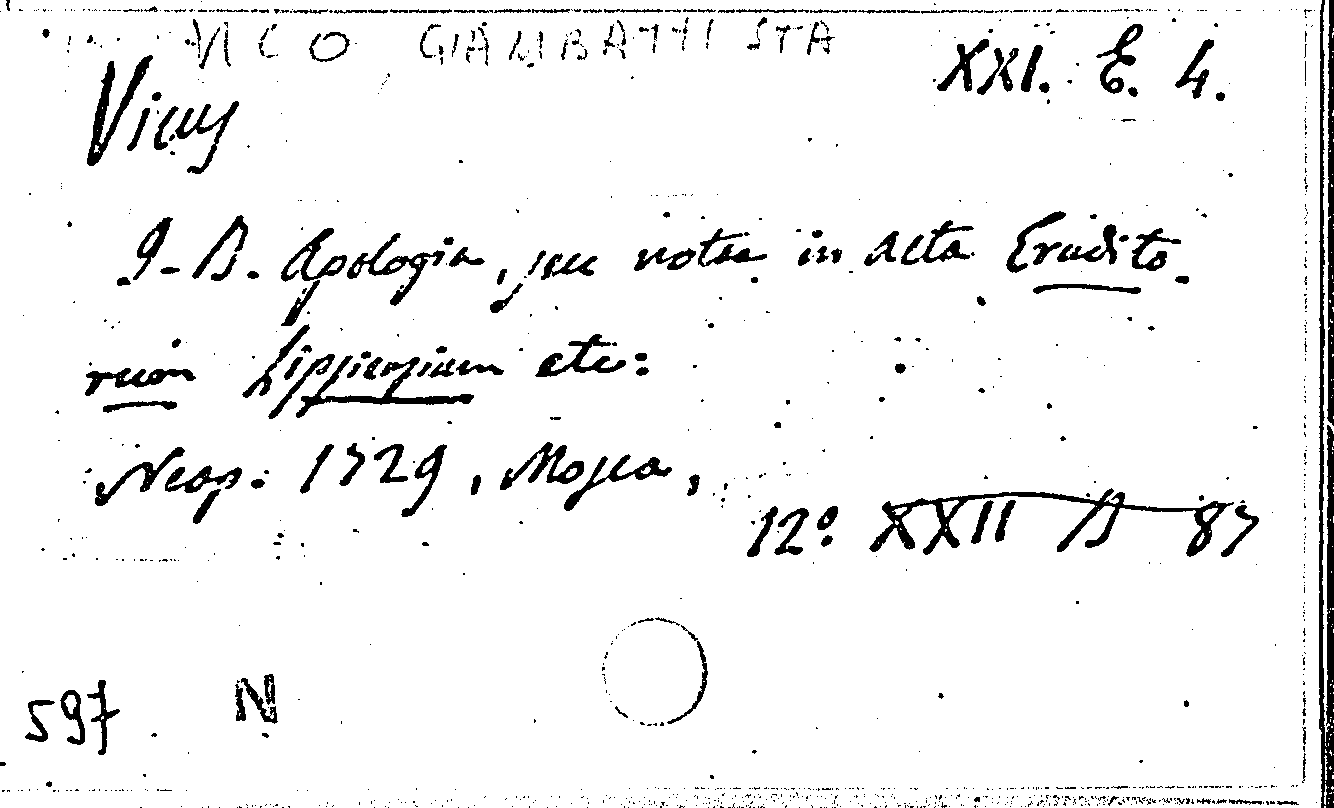 VICO GIAMBATTISTA
XXI. E. 4.
Vicus
J-B. Apologia, seu notae in acta Erudito-
rum Lipsiensium etc:
Neap. 1729, Mosca,
12º XXII B 87
597 N